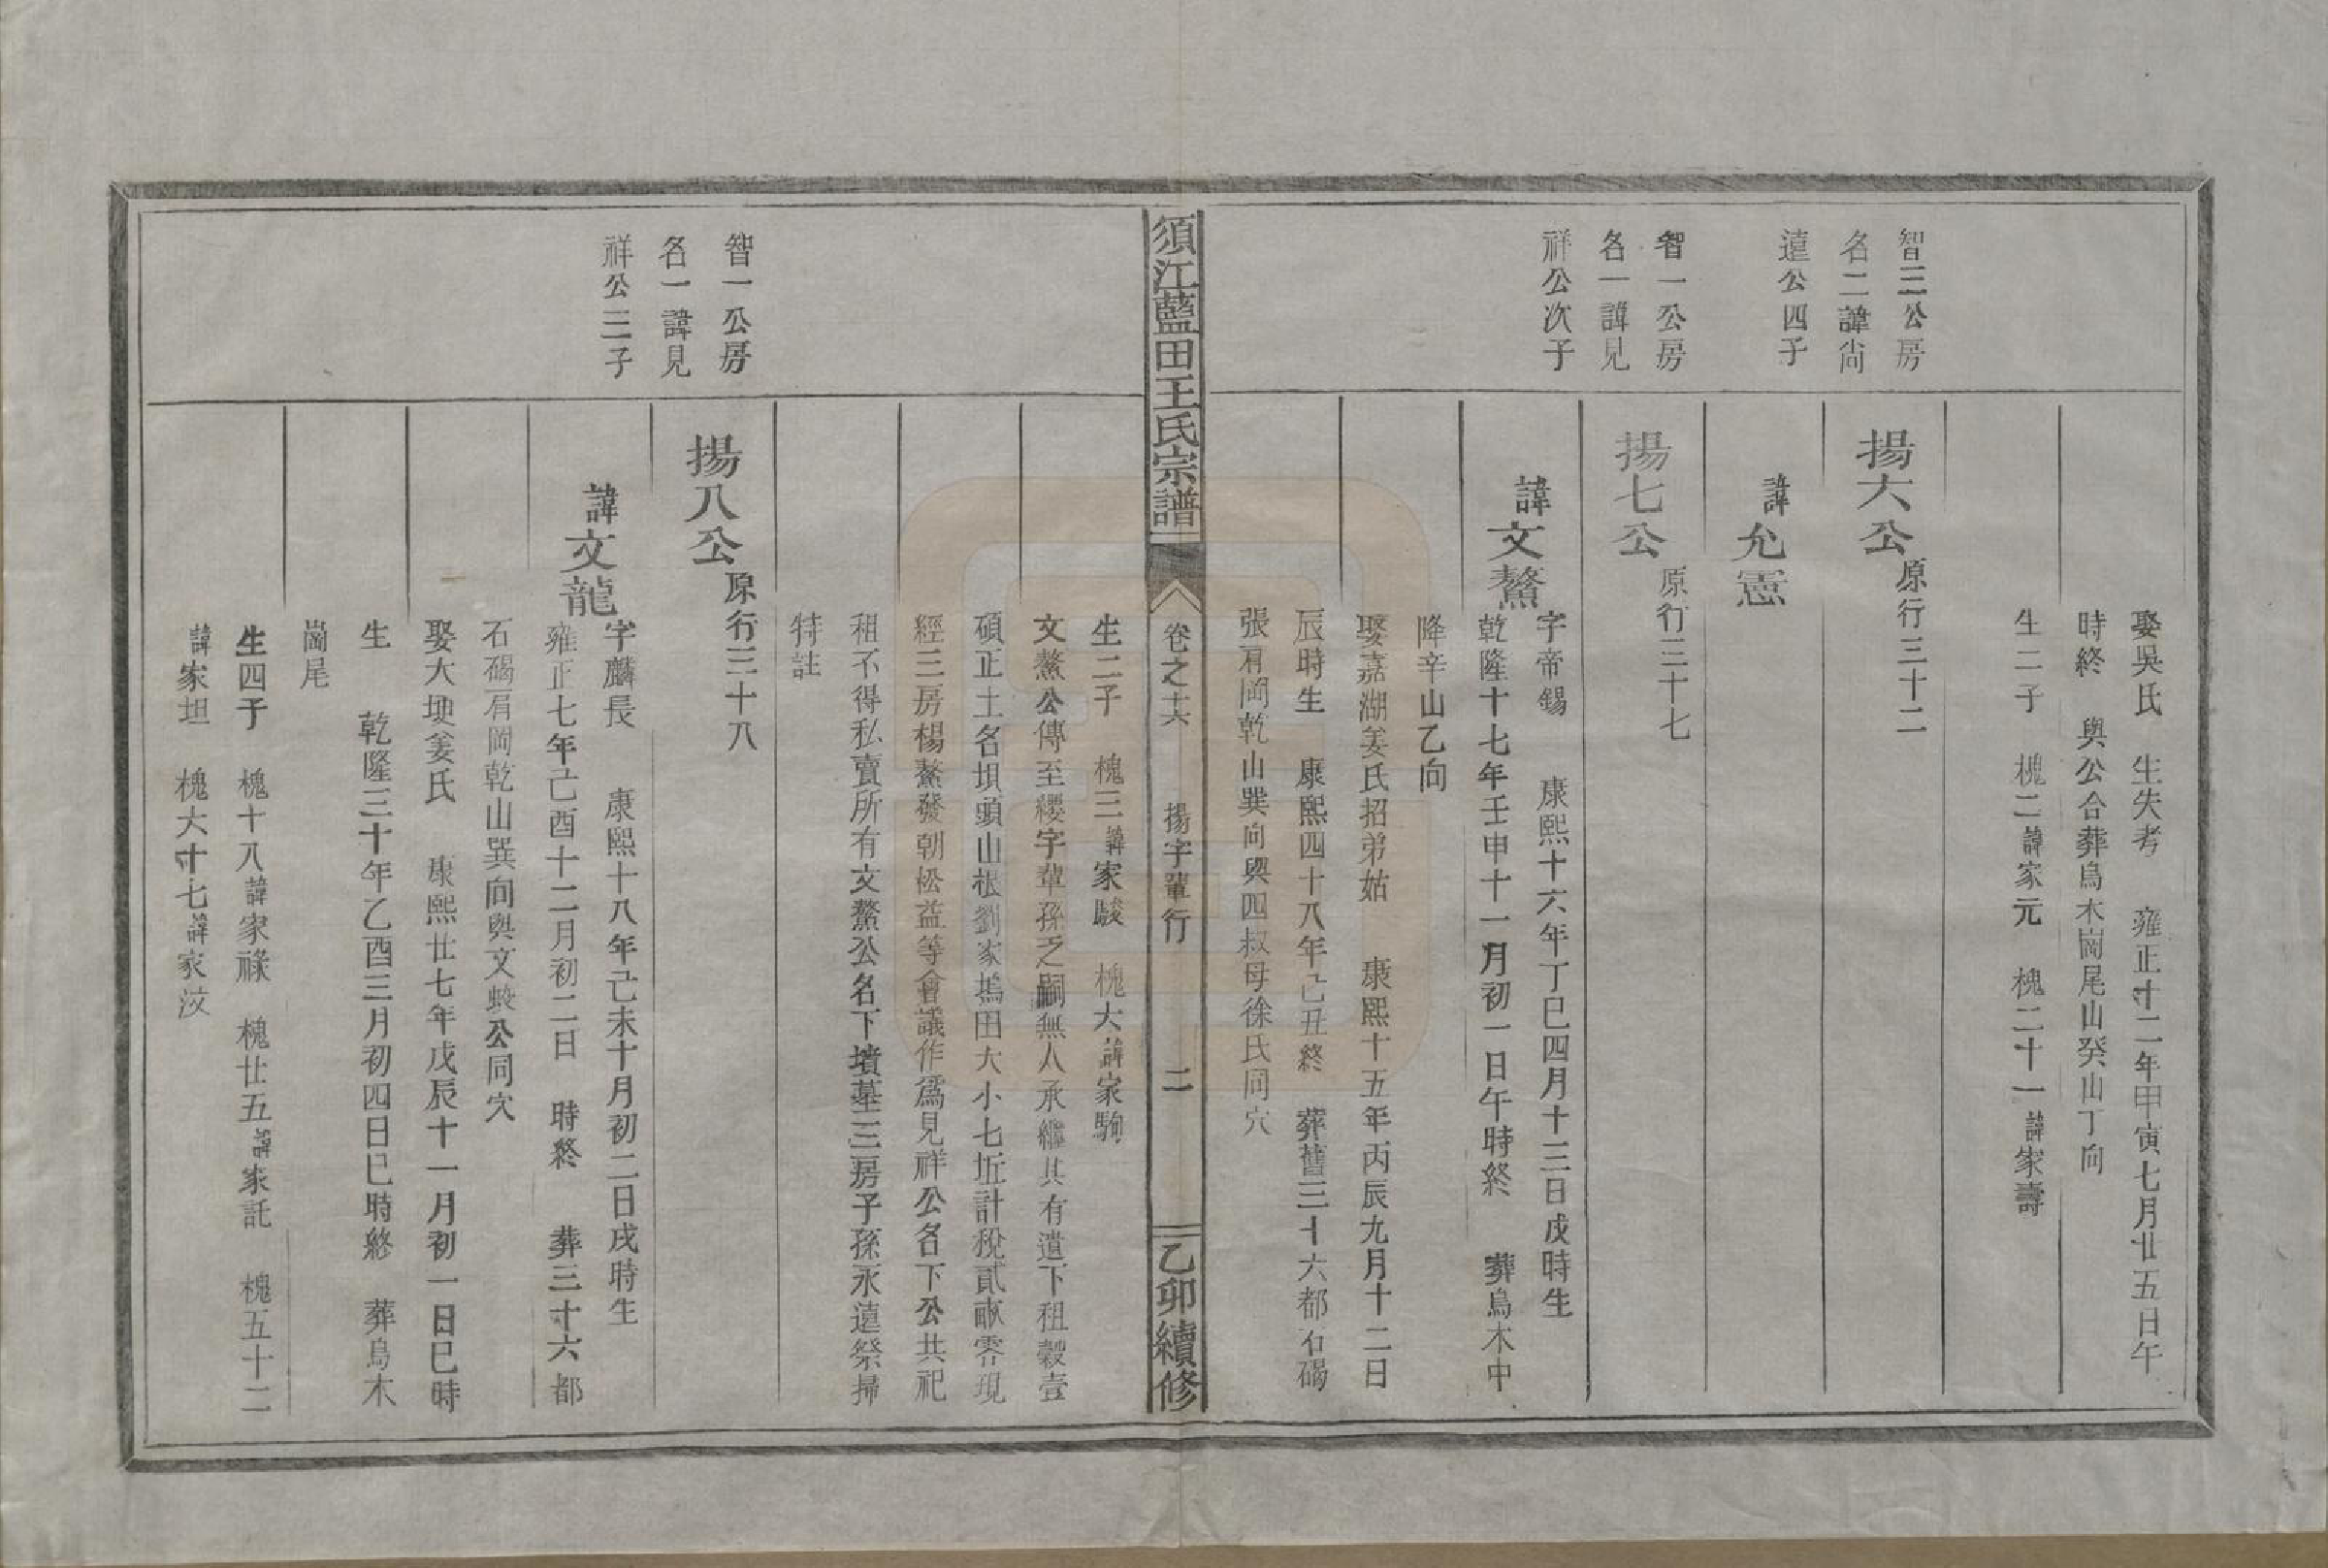 娶吳氏　生失考　雍正十二年甲寅七月廿五日午
時終　與公合葬烏木崗尾山癸山丁向
生二子　槐二諱家元　槐二十一諱家壽
智三公房
名二諱尙
遠公四子
揚六公原行三十二
諱允憲
智一公房
名一諱見
祥公次子
揚七公原行三十七
諱文鰲
字帝錫　康熙十六年丁巳四月十三日戌時生
乾隆十七年壬申十一月初一日午時終　葬烏木中
降辛山乙向
娶嘉湖姜氏招弟姑　康熙十五年丙辰九月十二日
辰時生　康熙四十八年己丑終　葬舊三十六都石碣
張眉岡乾山巽向與四叔母徐氏同穴
須江藍田王氏宗譜
卷之十六　揚字輩行　二
乙卯續修
生二子　槐三諱家駿　槐六諱家駒
文鰲公傳至纓字輩孫乏嗣無人承繼其有遺下租穀壹
碩正土名垻頭山根劉家塢田大小七坵計稅貳畝零現
經三房楊鰲發朝松益等會議作爲見祥公名下公共祀
租不得私賣所有文鰲公名下墳墓三房子孫永遠祭掃
特註
智一公房
名一諱見
祥公三子
揚八公原行三十八
諱文龍
字麟長　康熙十八年己未十月初二日戌時生
雍正七年己酉十二月初二日　時終　葬三十六都
石碣眉岡乾山巽向與文蛟公同穴
娶大埂姜氏　康熙廿七年戊辰十一月初一日巳時
生　乾隆三十年乙酉三月初四日巳時終　葬烏木
崗尾
生四子　槐十八諱家祿　槐廿五諱家託　槐五十二
諱家坦　槐六十七諱家汶